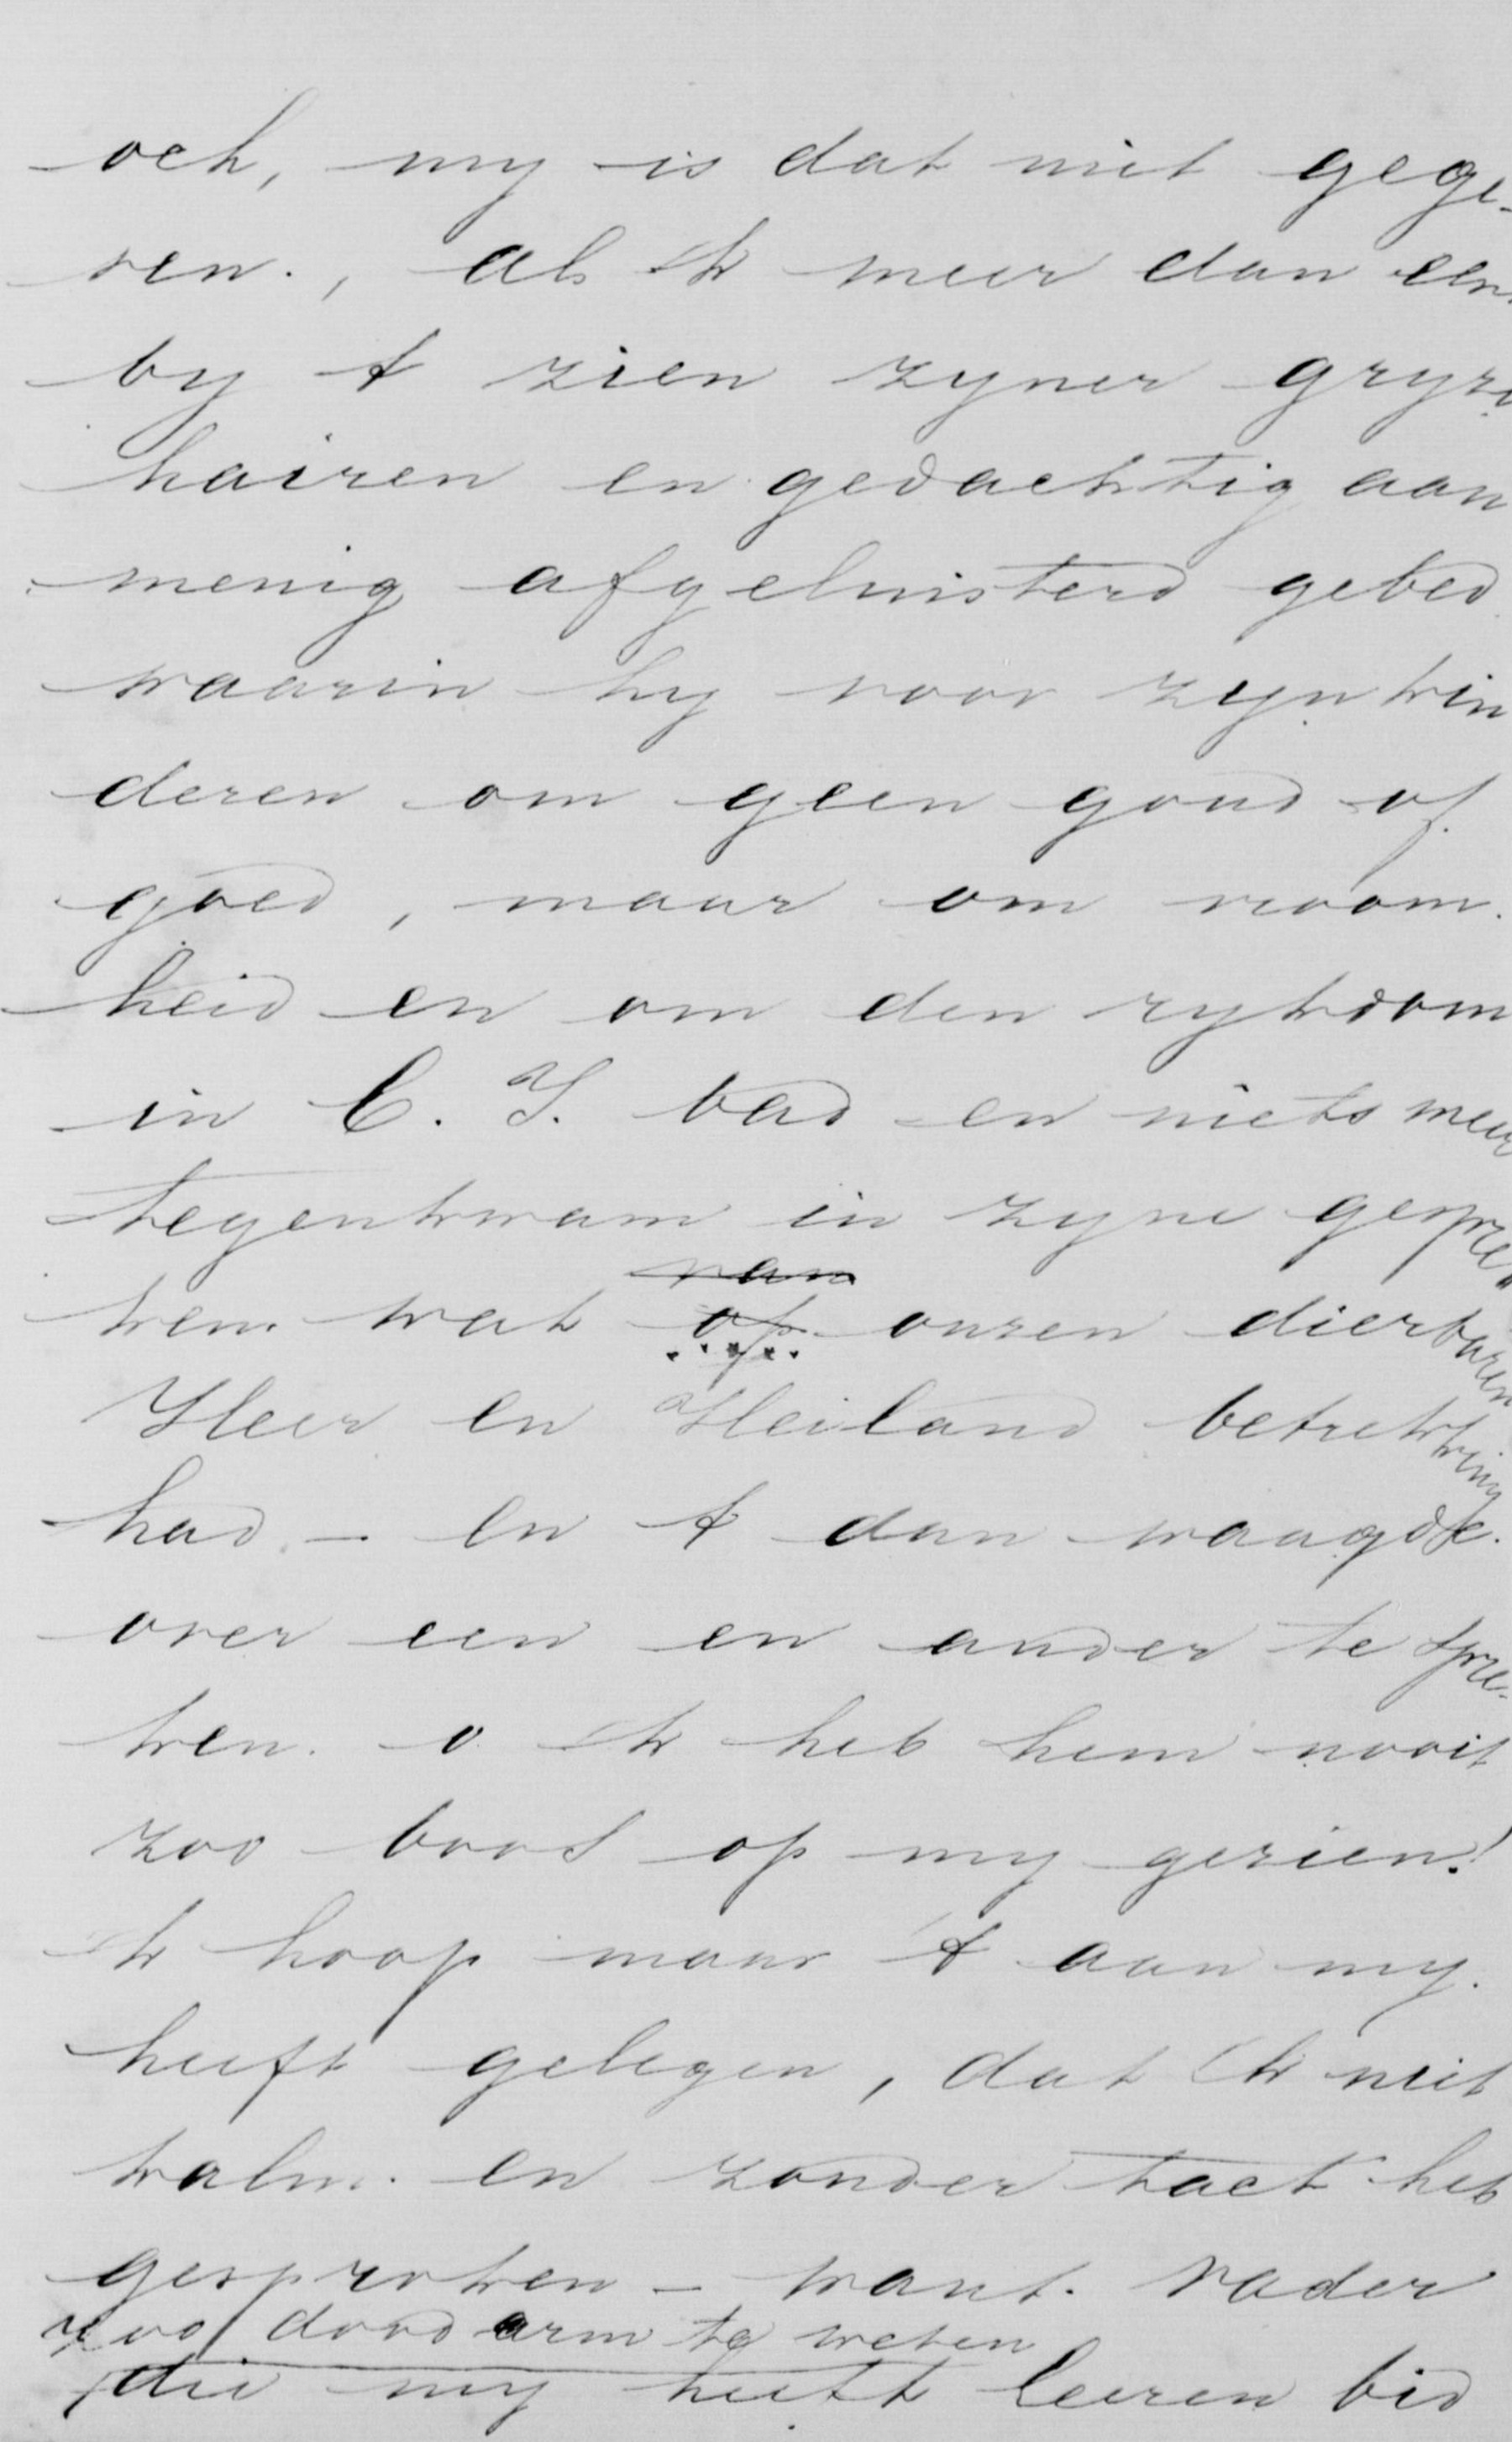 och, my is dat niet gege-
ven., als ik meer dan een
by 't zien zyner gryze
hairen en gedachtig aan
menig afgeluisterd gebed
waarin hy voor zyn kin
deren om geen goud of
goed, maar om vroom.
heid en om den rykdom
in C. J. bad en niets meer
tegenkwam in zyne gespre
ken wat van
op onzen dierbaren
Heer en Heiland betrekking
had - en 't dan waagde.
over een en ander te spre-
ken. o ik heb hem nooit
zoo boos op my gezien!
ik hoop maar 't aan my.
heeft gelegen, dat ik niet
kalm. en zonder tact heb
gesproken - want. Vader
zoo dood arm te weten
die my heeft leeren bid